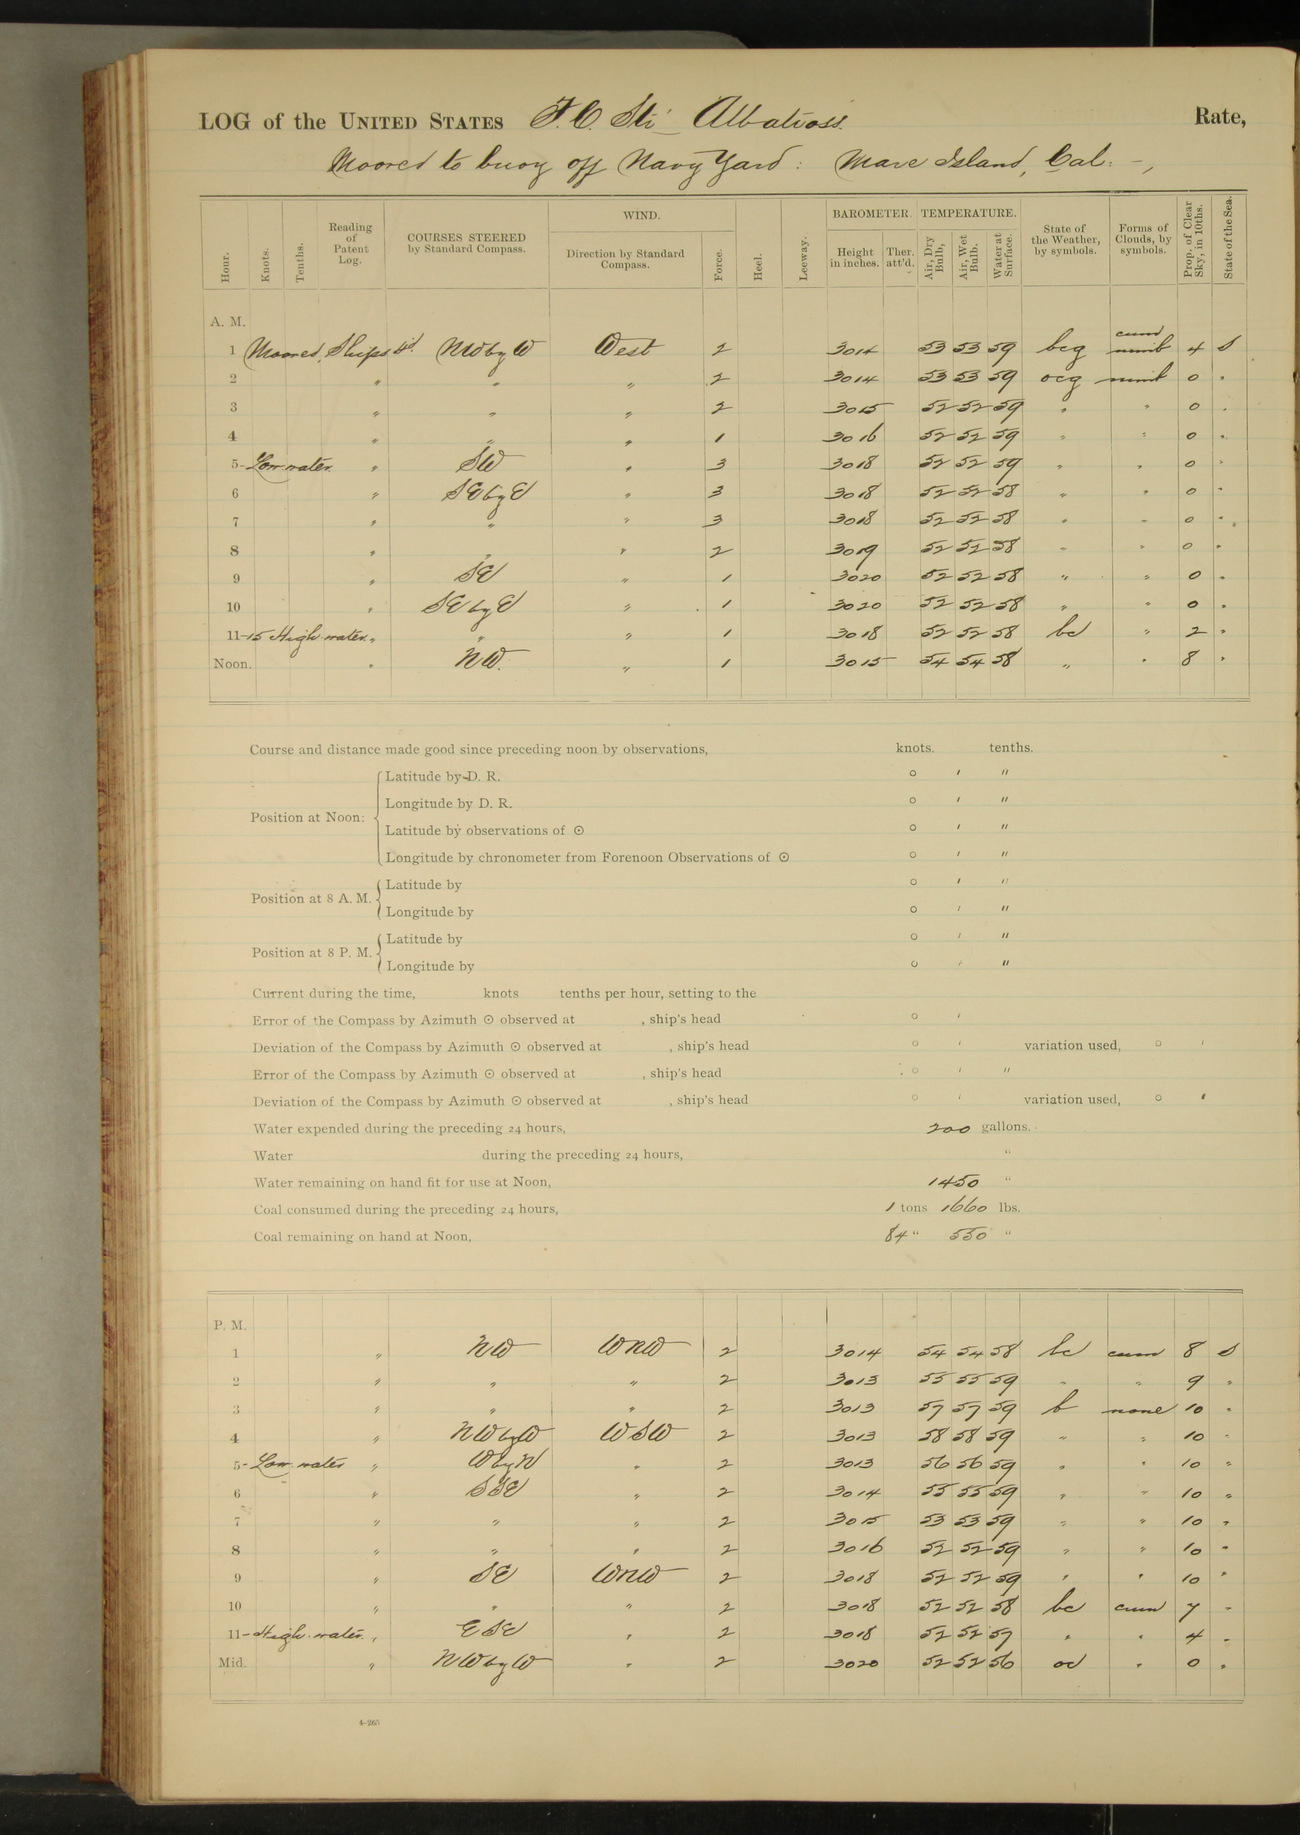 LOG of the UNITED STATES F. C. Str Albatross. Rate,
Moored to buoy off Navy Yard: Mare Island, Cal: -,
Hour. Knots. Tenths. Reading of Patent Log. COURSES STEERED by Standard Compass. WIND. Direction by Standard Compass. Force. Heel. Leeway. BAROMETER. Height in inches. Ther. att'd. TEMPERATURE. Air, Dry Bulb, Air, Wet Bulb. Water at Surface. State of the Weather, by symbols. Forms of Clouds, by symbols. Prop. of Clear Sky, in 10ths. State of the Sea.
A. M.
cum
1 Moored, Ships h'd. NW by W West 2 3014 53 53 59 bcg nimb 4 S
2 " " " 2 3014 53 53 59 ocg nimb 0 "
3 " " " 2 3015 52 52 59 " " 0 "
4 " " " 1 3016 52 52 59 " " 0 "
5- Low water. " SW " 3 3018 52 52 59 " " 0 "
6 " SE by E " 3 3018 52 52 58 " " 0 "
7 " " " 3 3018 52 52 58 " " 0 "
8 " " " 2 3019 52 52 58 " " 0 "
9 " SE " 1 3020 52 52 58 " " 0 "
10 " SE by E " 1 3020 52 52 58 " " 0 "
11-15 High water. " " " 1 3018 52 52 58 bc " 2 "
Noon. " NW. " 1 3015 54 54 58 " " 8 "
Course and distance made good since preceding noon by observations, knots. tenths.
Position at Noon: Latitude by D. R. ° ′ ″
Longitude by D. R. ° ′ ″
Latitude by observations of ☉ ° ′ ″
Longitude by chronometer from Forenoon Observations of ☉ ° ′ ″
Position at 8 A. M. Latitude by ° ′ ″
Longitude by ° ′ ″
Position at 8 P. M. Latitude by ° ′ ″
Longitude by ° ′ ″
Current during the time, knots tenths per hour, setting to the
Error of the Compass by Azimuth ☉ observed at , ship's head ° ′
Deviation of the Compass by Azimuth ☉ observed at , ship's head ° ′ variation used, ° ′
Error of the Compass by Azimuth ☉ observed at , ship's head ° ′ ″
Deviation of the Compass by Azimuth ☉ observed at , ship's head ° ′ variation used, ° ′
Water expended during the preceding 24 hours, 200 gallons.
Water during the preceding 24 hours, "
Water remaining on hand fit for use at Noon, 1450 "
Coal consumed during the preceding 24 hours, 1 tons 1660 lbs.
Coal remaining on hand at Noon, 84 " 550 "
P. M.
1 " NW WNW 2 3014 54 54 58 bc cum 8 S
2 " " " 2 3013 55 55 59 " " 9 "
3 " " " 2 3013 57 57 59 b none 10 "
4 " NW by W WSW 2 3013 58 58 59 " " 10 "
5- Low water " W by N " 2 3013 56 56 59 " " 10 "
6 " SSE " 2 3014 55 55 59 " " 10 "
7 " " " 2 3015 53 53 59 " " 10 "
8 " " " 2 3016 52 52 59 " " 10 "
9 " SE WNW 2 3018 52 52 59 " " 10 "
10 " " " 2 3018 52 52 58 bc cum 7 "
11- High water. " ESE " 2 3018 52 52 57 " " 4 "
Mid. " NW by W " 2 3020 52 52 56 oc " 0 "
4-265